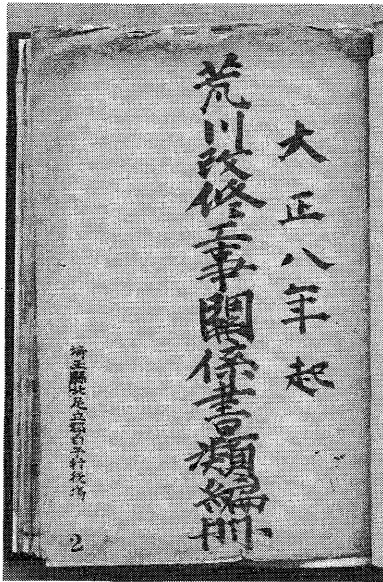 大正八年起
荒川改修工事關係書類編冊
埼玉縣北足立郡日下村役場
2